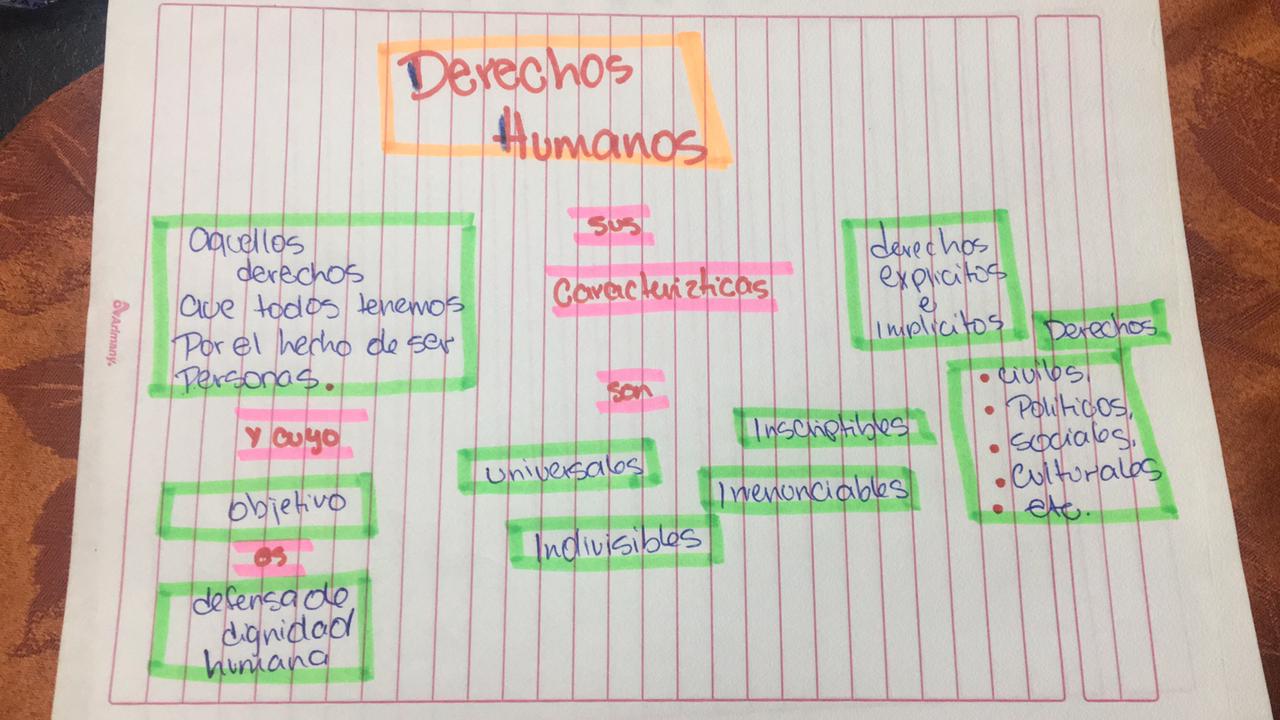 Derechos
Humanos
aquellos
derechos
que todos tenemos
Por el hecho de ser
Personas.
y cuyo
objetivo
es
defensa de
dignidad
humana
sus
Caracterizticas
son
universales
Indivisibles
Inscriptibles
Irrenunciables
derechos
explicitos
e
implicitos
Derechos
• civiles,
• Políticos,
• sociales,
• Culturales
• etc.
Arimany.